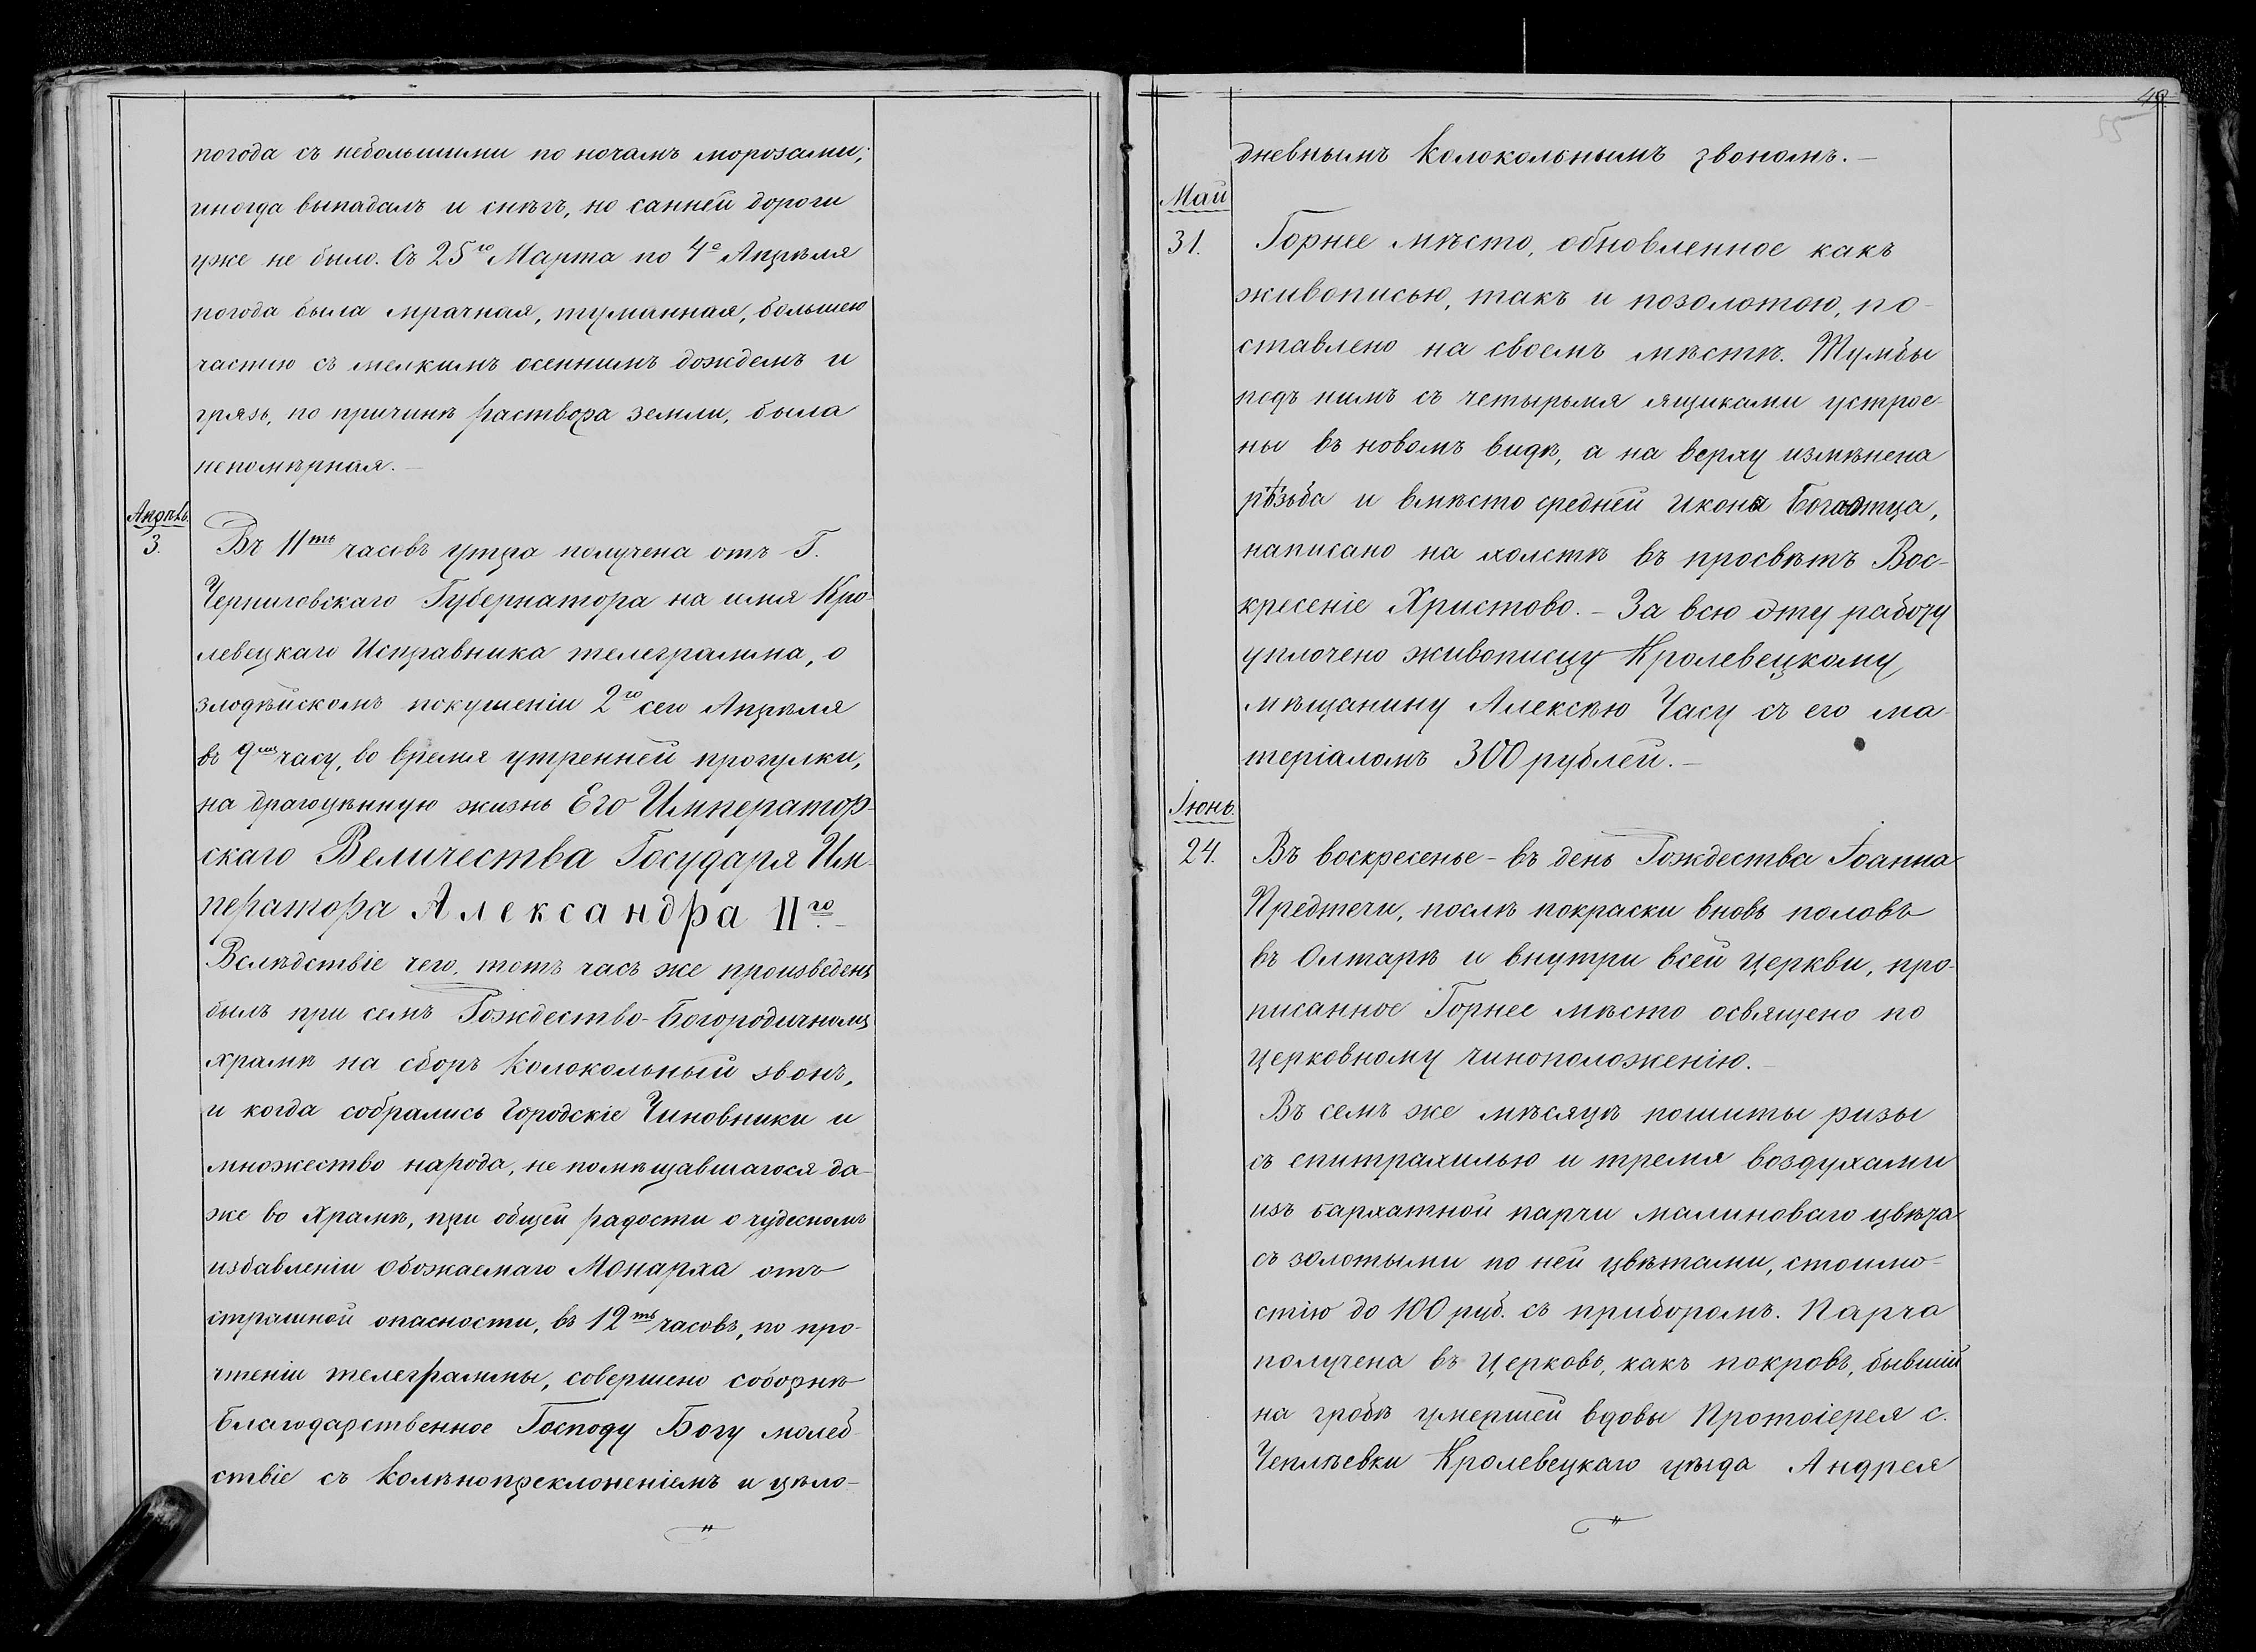 погода съ небольшими по ночамъ морозами;
иногда выпадалъ и снѣгъ, но санней дороги
уже не было. Съ 25го Марта по 4е Апрѣля
погода была мрачная, туманная, большею
частию съ мелкимъ осеннимъ дождемъ и
грязь, по причинѣ раствора земли, была
непомѣрная. –
Апрѣль.
3.
Въ 11ть часовъ утра получена отъ Г.
Черниговскаго Губернатора на имя Кро-
левецкаго Исправника телеграмма, о
злодѣйскомъ покушеніи 2го сего Апрѣля
въ 9мъ часу, во время утренней прогулки,
на драгоцѣнную жизнь Его Император-
скаго Величества Государя Им-
ператора Александра IIго. –
Вслѣдствіе чего, тотъ часъ же произведенъ
былъ при семъ Рождество-Богородичномъ
храмѣ на сборъ колокольный звонъ,
и когда собрались Городскіе Чиновники и
множество народа, не помѣщавшагося да-
же во Храмѣ, при общей радости о чудесномъ
избавленіи обожаемаго Монарха отъ
страшной опасности, въ 12ть часовъ, по про-
чтеніи телеграммы, совершено соборнѣ
благодарственное Господу Богу молеб-
ствіе съ колѣнопреклоненіемъ и цѣло-
49.
55
дневнымъ колокольнымъ звономъ. –
Май
31.
Горнее мѣсто, обновленное какъ
живописью, такъ и позолотою, по-
ставлено на своемъ мѣстѣ. Тумбы
подъ нимъ съ четырьмя ящиками устрое-
ны въ новомъ видѣ, а на верху измѣнена
рѣзьба и вмѣсто средней иконы Богоотца,
написано на холстѣ въ просвѣтъ Вос-
кресеніе Христово. – За всю эту работу
уплочено живописцу Кролевецкому
мѣщанину Алексѣю Часу съ его ма-
теріаломъ 300 рублей. –
Іюнь.
24.
Въ воскресенье – въ день Рождества Іоанна
Предтечи, послѣ покраски вновь половъ
въ Олтарѣ и внутри всей церкви, про-
писанное Горнее мѣсто освящено по
церковному чиноположенію. –
Въ семъ же мѣсяцѣ пошиты ризы
съ епитрахилью и тремя воздухами
изъ бархатной парчи малиноваго цвѣта
съ золотыми по ней цвѣтами, стоимо-
стію до 100 руб. съ приборомъ. Парча
получена въ Церковь, какъ покровъ, бывшій
на гробѣ умершей вдовы Протоіерея с.
Чеплѣевки Кролевецкаго уѣзда Андрея